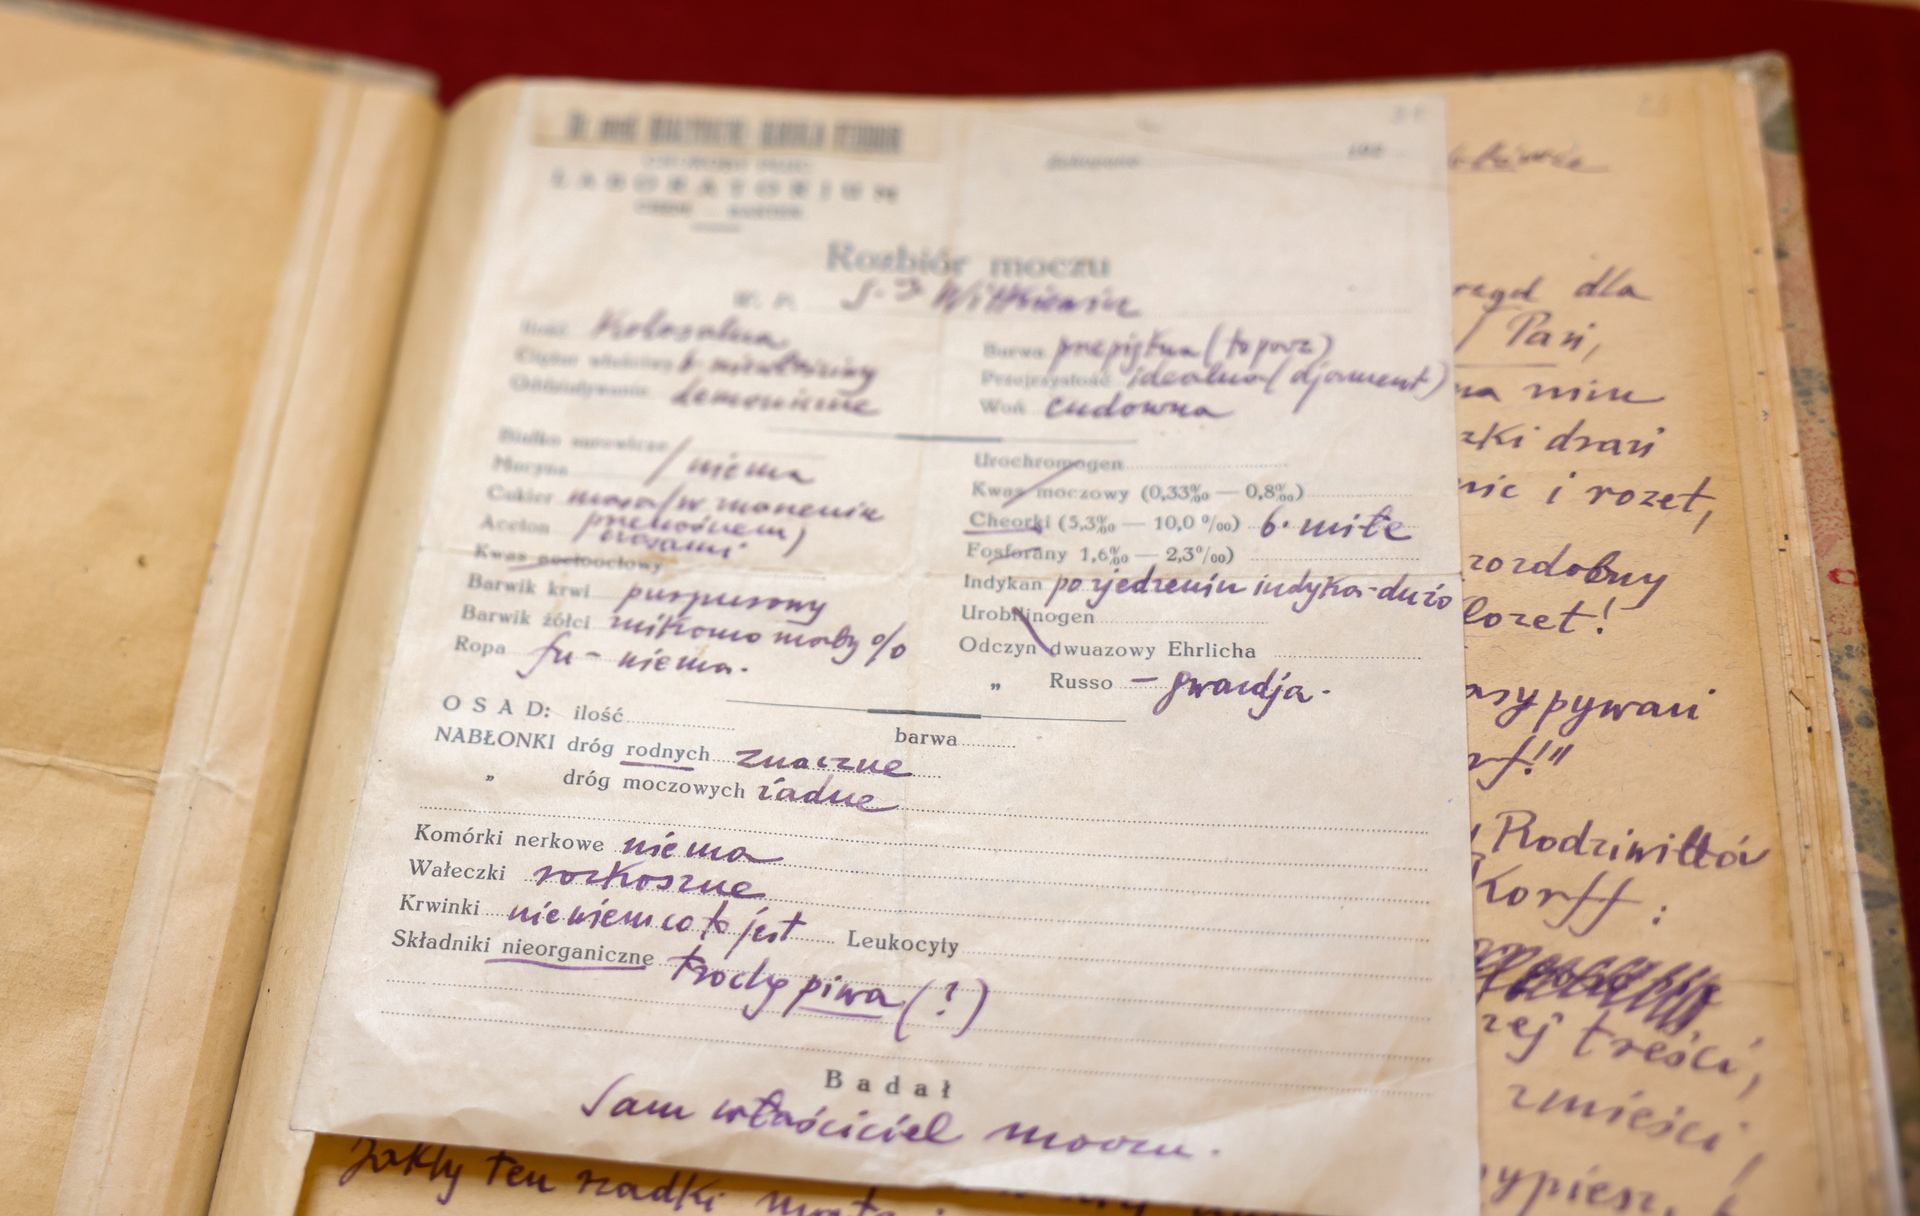 LABORATORJUM
Rozbiór moczu
W. P. S. I. Witkiewicz
Ilość Kolosalna
Ciężar właściwy b. niewłaściwy
Oddziaływanie demoniczne
Barwa przepiękna (topaz)
Przejrzystość idealna (djament)
Woń cudowna
Białko surowicze / niema
Mucyna
Cukier masa (w znaczeniu
Aceton przenośnem)
czasami
Kwas acetooctowy
Barwik krwi purpurowy
Barwik żółci nikomo mały %
Ropa fu - niema.
Urochromogen
Kwas moczowy (0,33‰ — 0,8‰)
Cheorki (5,3‰ — 10,0 ‰) b. miłe
Fosforany 1,6‰ — 2,3‰)
Indykan po zjedzeniu indyka - dużo
Urobilinogen
Odczyn dwuazowy Ehrlicha
„ Russo - gwardja.
OSAD: ilość barwa
NABŁONKI dróg rodnych znaczne
„ dróg moczowych żadne
Komórki nerkowe niema
Wałeczki rozkoszne
Krwinki niewiem co to jest Leukocyty
Składniki nieorganiczne trochę piwa (?)
Badał
Sam właściciel moczu.
dla
Pań,
na nim
drań
i rozet,
rozdobny
klozet!
Rodziwiłłów
Korff:
treści,
zmieści
Jakby ten rzadki